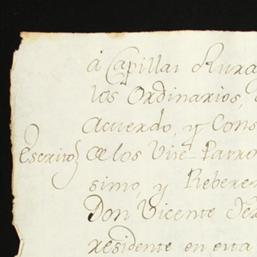 á Capillas Rura
los Ordinarios,
Acuerdo, y Cons
Escrito de los Vice-Patro
simo, y Reberen
Don Vicente
residente en esta